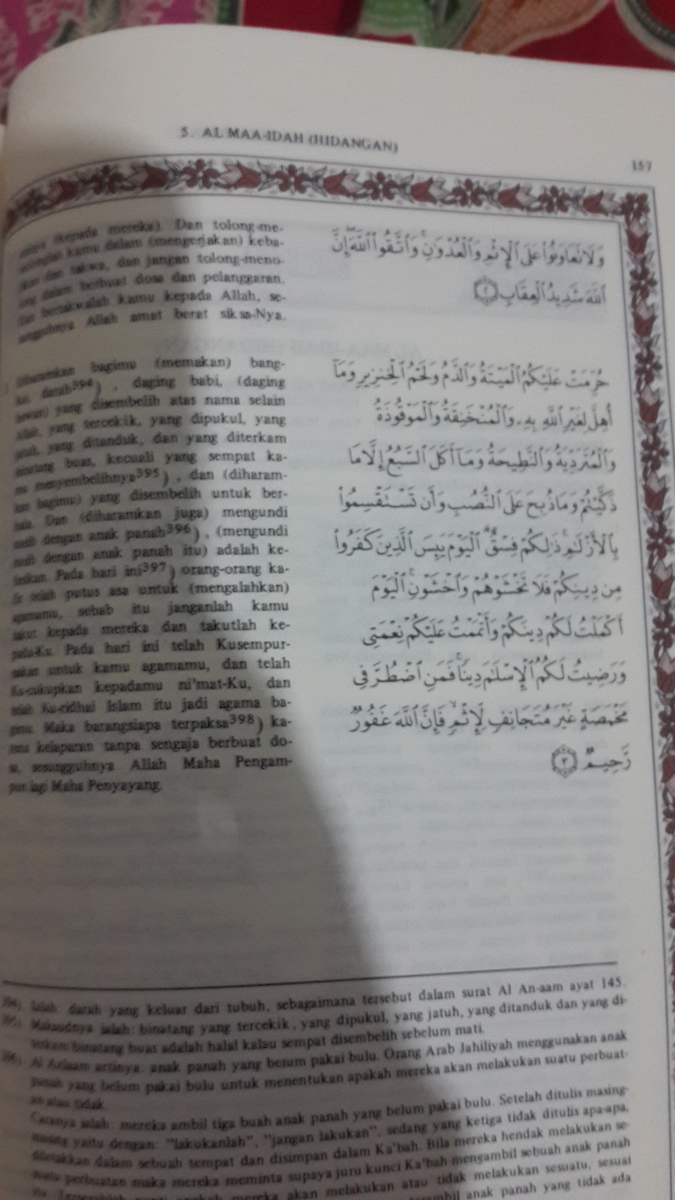 5. AL MAA-IDAH (HIDANGAN)
157
(kepada mereka). Dan tolong-me-
kamu dalam (mengerjakan) keba-
dan takwa, dan jangan tolong-meno-
dalam berbuat dosa dan pelanggaran.
bertakwalah kamu kepada Allah, se-
sungguhnya Allah amat berat siksa-Nya.
Diharamkan bagimu (memakan) bang-
kai, darah394), daging babi, (daging
hewan) yang disembelih atas nama selain
Allah, yang tercekik, yang dipukul, yang
jatuh, yang ditanduk, dan yang diterkam
binatang buas, kecuali yang sempat ka-
mu menyembelihnya395), dan (diharam-
kan bagimu) yang disembelih untuk ber-
hala. Dan (diharamkan juga) mengundi
nasib dengan anak panah396), (mengundi
nasib dengan anak panah itu) adalah ke-
fasikan. Pada hari ini397) orang-orang ka-
fir telah putus asa untuk (mengalahkan)
agamamu, sebab itu janganlah kamu
takut kepada mereka dan takutlah ke-
pada-Ku. Pada hari ini telah Kusempur-
nakan untuk kamu agamamu, dan telah
Ku-cukupkan kepadamu ni'mat-Ku, dan
telah Ku-ridhai Islam itu jadi agama ba-
gimu. Maka barangsiapa terpaksa398) ka-
rena kelaparan tanpa sengaja berbuat do-
sa, sesungguhnya Allah Maha Pengam-
pun lagi Maha Penyayang.
وَلَا تَعَاوَنُوا۟ عَلَى ٱلْإِثْمِ وَٱلْعُدْوَٰنِ ۚ وَٱتَّقُوا۟ ٱللَّهَ ۖ إِنَّ
ٱللَّهَ شَدِيدُ ٱلْعِقَابِ ٢
حُرِّمَتْ عَلَيْكُمُ ٱلْمَيْتَةُ وَٱلدَّمُ وَلَحْمُ ٱلْخِنزِيرِ وَمَآ
أُهِلَّ لِغَيْرِ ٱللَّهِ بِهِۦ وَٱلْمُنْخَنِقَةُ وَٱلْمَوْقُوذَةُ
وَٱلْمُتَرَدِّيَةُ وَٱلنَّطِيحَةُ وَمَآ أَكَلَ ٱلسَّبُعُ إِلَّا مَا
ذَكَّيْتُمْ وَمَا ذُبِحَ عَلَى ٱلنُّصُبِ وَأَن تَسْتَقْسِمُوا۟
بِٱلْأَزْلَٰمِ ۚ ذَٰلِكُمْ فِسْقٌ ۗ ٱلْيَوْمَ يَئِسَ ٱلَّذِينَ كَفَرُوا۟
مِن دِينِكُمْ فَلَا تَخْشَوْهُمْ وَٱخْشَوْنِ ۚ ٱلْيَوْمَ
أَكْمَلْتُ لَكُمْ دِينَكُمْ وَأَتْمَمْتُ عَلَيْكُمْ نِعْمَتِى
وَرَضِيتُ لَكُمُ ٱلْإِسْلَٰمَ دِينًا ۚ فَمَنِ ٱضْطُرَّ فِى
مَخْمَصَةٍ غَيْرَ مُتَجَانِفٍ لِّإِثْمٍ ۙ فَإِنَّ ٱللَّهَ غَفُورٌ
رَّحِيمٌ ٣
394). Ialah: darah yang keluar dari tubuh, sebagaimana tersebut dalam surat Al An-aam ayat 145.
395). Maksudnya ialah: binatang yang tercekik, yang dipukul, yang jatuh, yang ditanduk dan yang di-
terkam binatang buas adalah halal kalau sempat disembelih sebelum mati.
396). Al Azlaam artinya: anak panah yang belum pakai bulu. Orang Arab Jahiliyah menggunakan anak
panah yang belum pakai bulu untuk menentukan apakah mereka akan melakukan suatu perbuat-
an atau tidak.
Caranya ialah: mereka ambil tiga buah anak panah yang belum pakai bulu. Setelah ditulis masing-
masing yaitu dengan: "lakukanlah", "jangan lakukan", sedang yang ketiga tidak ditulis apa-apa,
diletakkan dalam sebuah tempat dan disimpan dalam Ka'bah. Bila mereka hendak melakukan se-
suatu perbuatan maka mereka meminta supaya juru kunci Ka'bah mengambil sebuah anak panah
mereka akan melakukan atau tidak melakukan sesuatu, sesuai
anak panah yang tidak ada